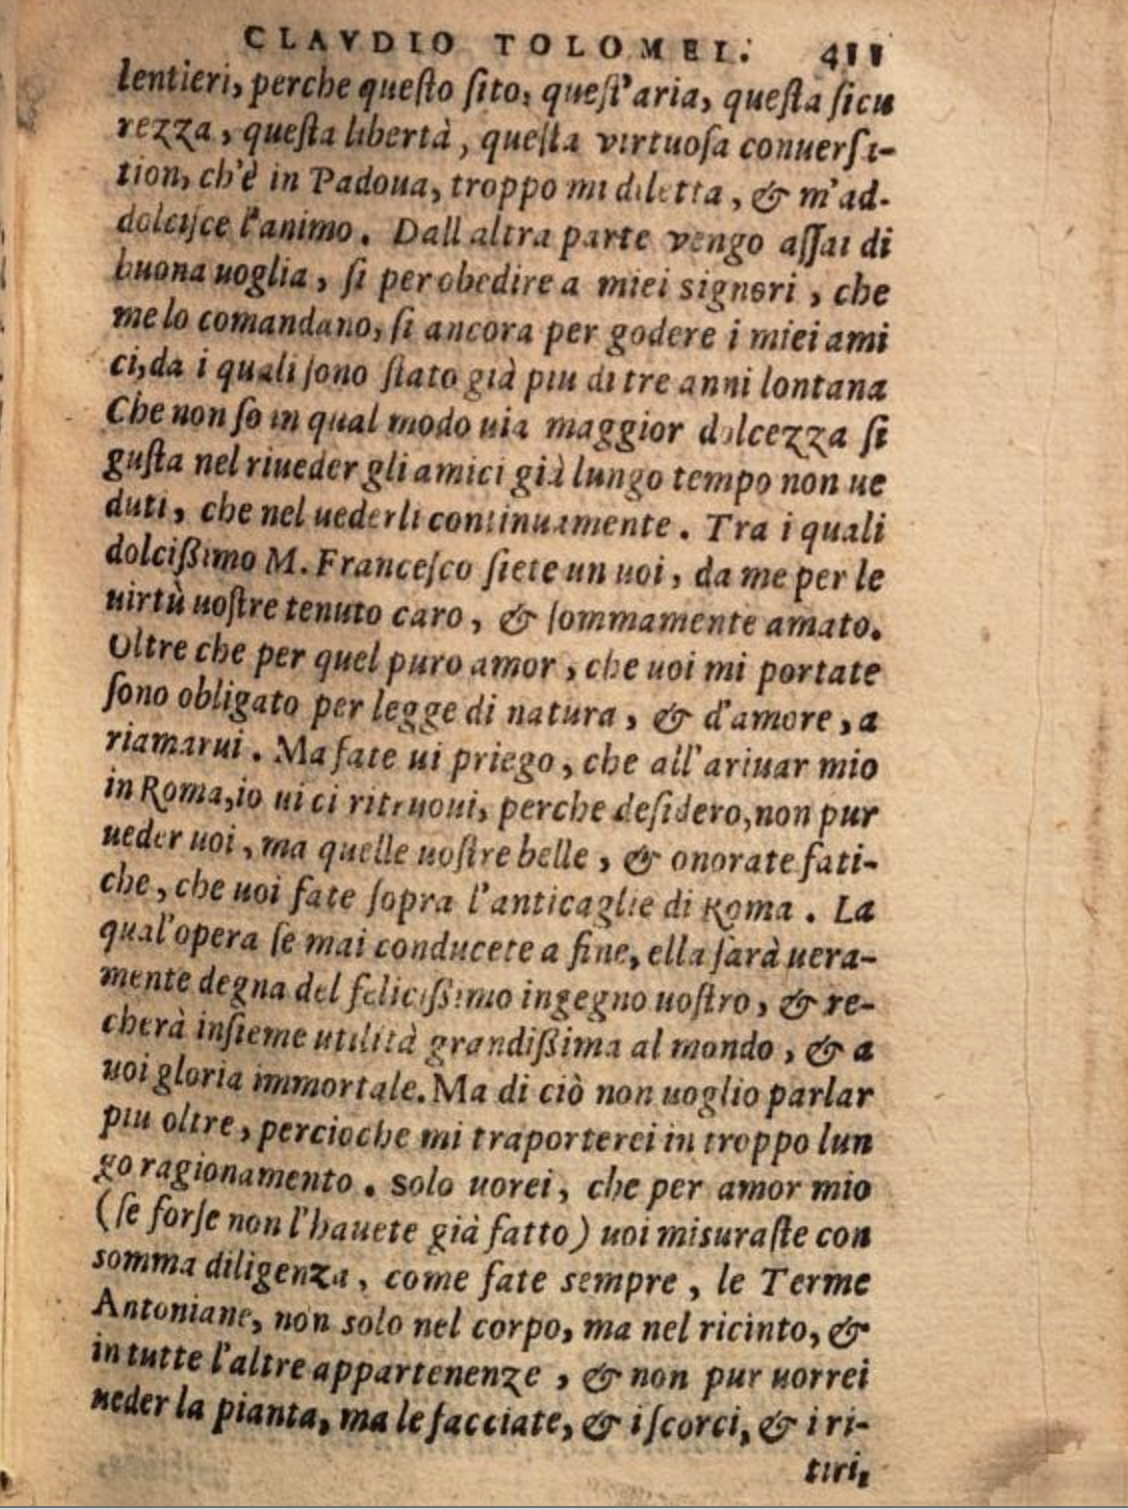 CLAVDIO TOLOMEI. 411
lentieri, perche queſto ſito, queſt'aria, queſta ſicu
rezza, queſta libertà, queſta virtuoſa conuerſa-
tion, ch'è in Padoua, troppo mi diletta, & m'ad-
dolciſce l'animo. Dall altra parte vengo aſſai di
buona uoglia, ſi per obedire a miei signori, che
me lo comandano, ſi ancora per godere i miei ami
ci, da i quali ſono ſtato già piu di tre anni lontana
Che non ſo in qual modo uia maggior dolcezza ſi
guſta nel riueder gli amici già lungo tempo non ue
duti, che nel uederli continuamente. Tra i quali
dolcißimo M. Franceſco ſiete un uoi, da me per le
uirtù uoſtre tenuto caro, & ſommamente amato.
Oltre che per quel puro amor, che uoi mi portate
ſono obligato per legge di natura, & d'amore, a
riamarui. Ma fate ui priego, che all'ariuar mio
in Roma, io ui ci ritruoui, perche deſidero, non pur
ueder uoi, ma quelle uoſtre belle, & onorate fati-
che, che uoi fate ſopra l'anticaglie di Roma. La
qual'opera ſe mai conducete a fine, ella ſarà uera-
mente degna del felicißimo ingegno uoſtro, & re-
cherà inſieme utilità grandißima al mondo, & a
uoi gloria immortale. Ma di ciò non uoglio parlar
piu oltre, percioche mi traporterei in troppo lun
go ragionamento. Solo uorei, che per amor mio
(ſe forſe non l'hauete già fatto) uoi misuraſte con
somma diligenza, come fate sempre, le Terme
Antoniane, non solo nel corpo, ma nel ricinto, &
in tutte l'altre appartenenze, & non pur uorrei
ueder la pianta, ma le facciate, & i ſcorci, & i ri-
tiri,